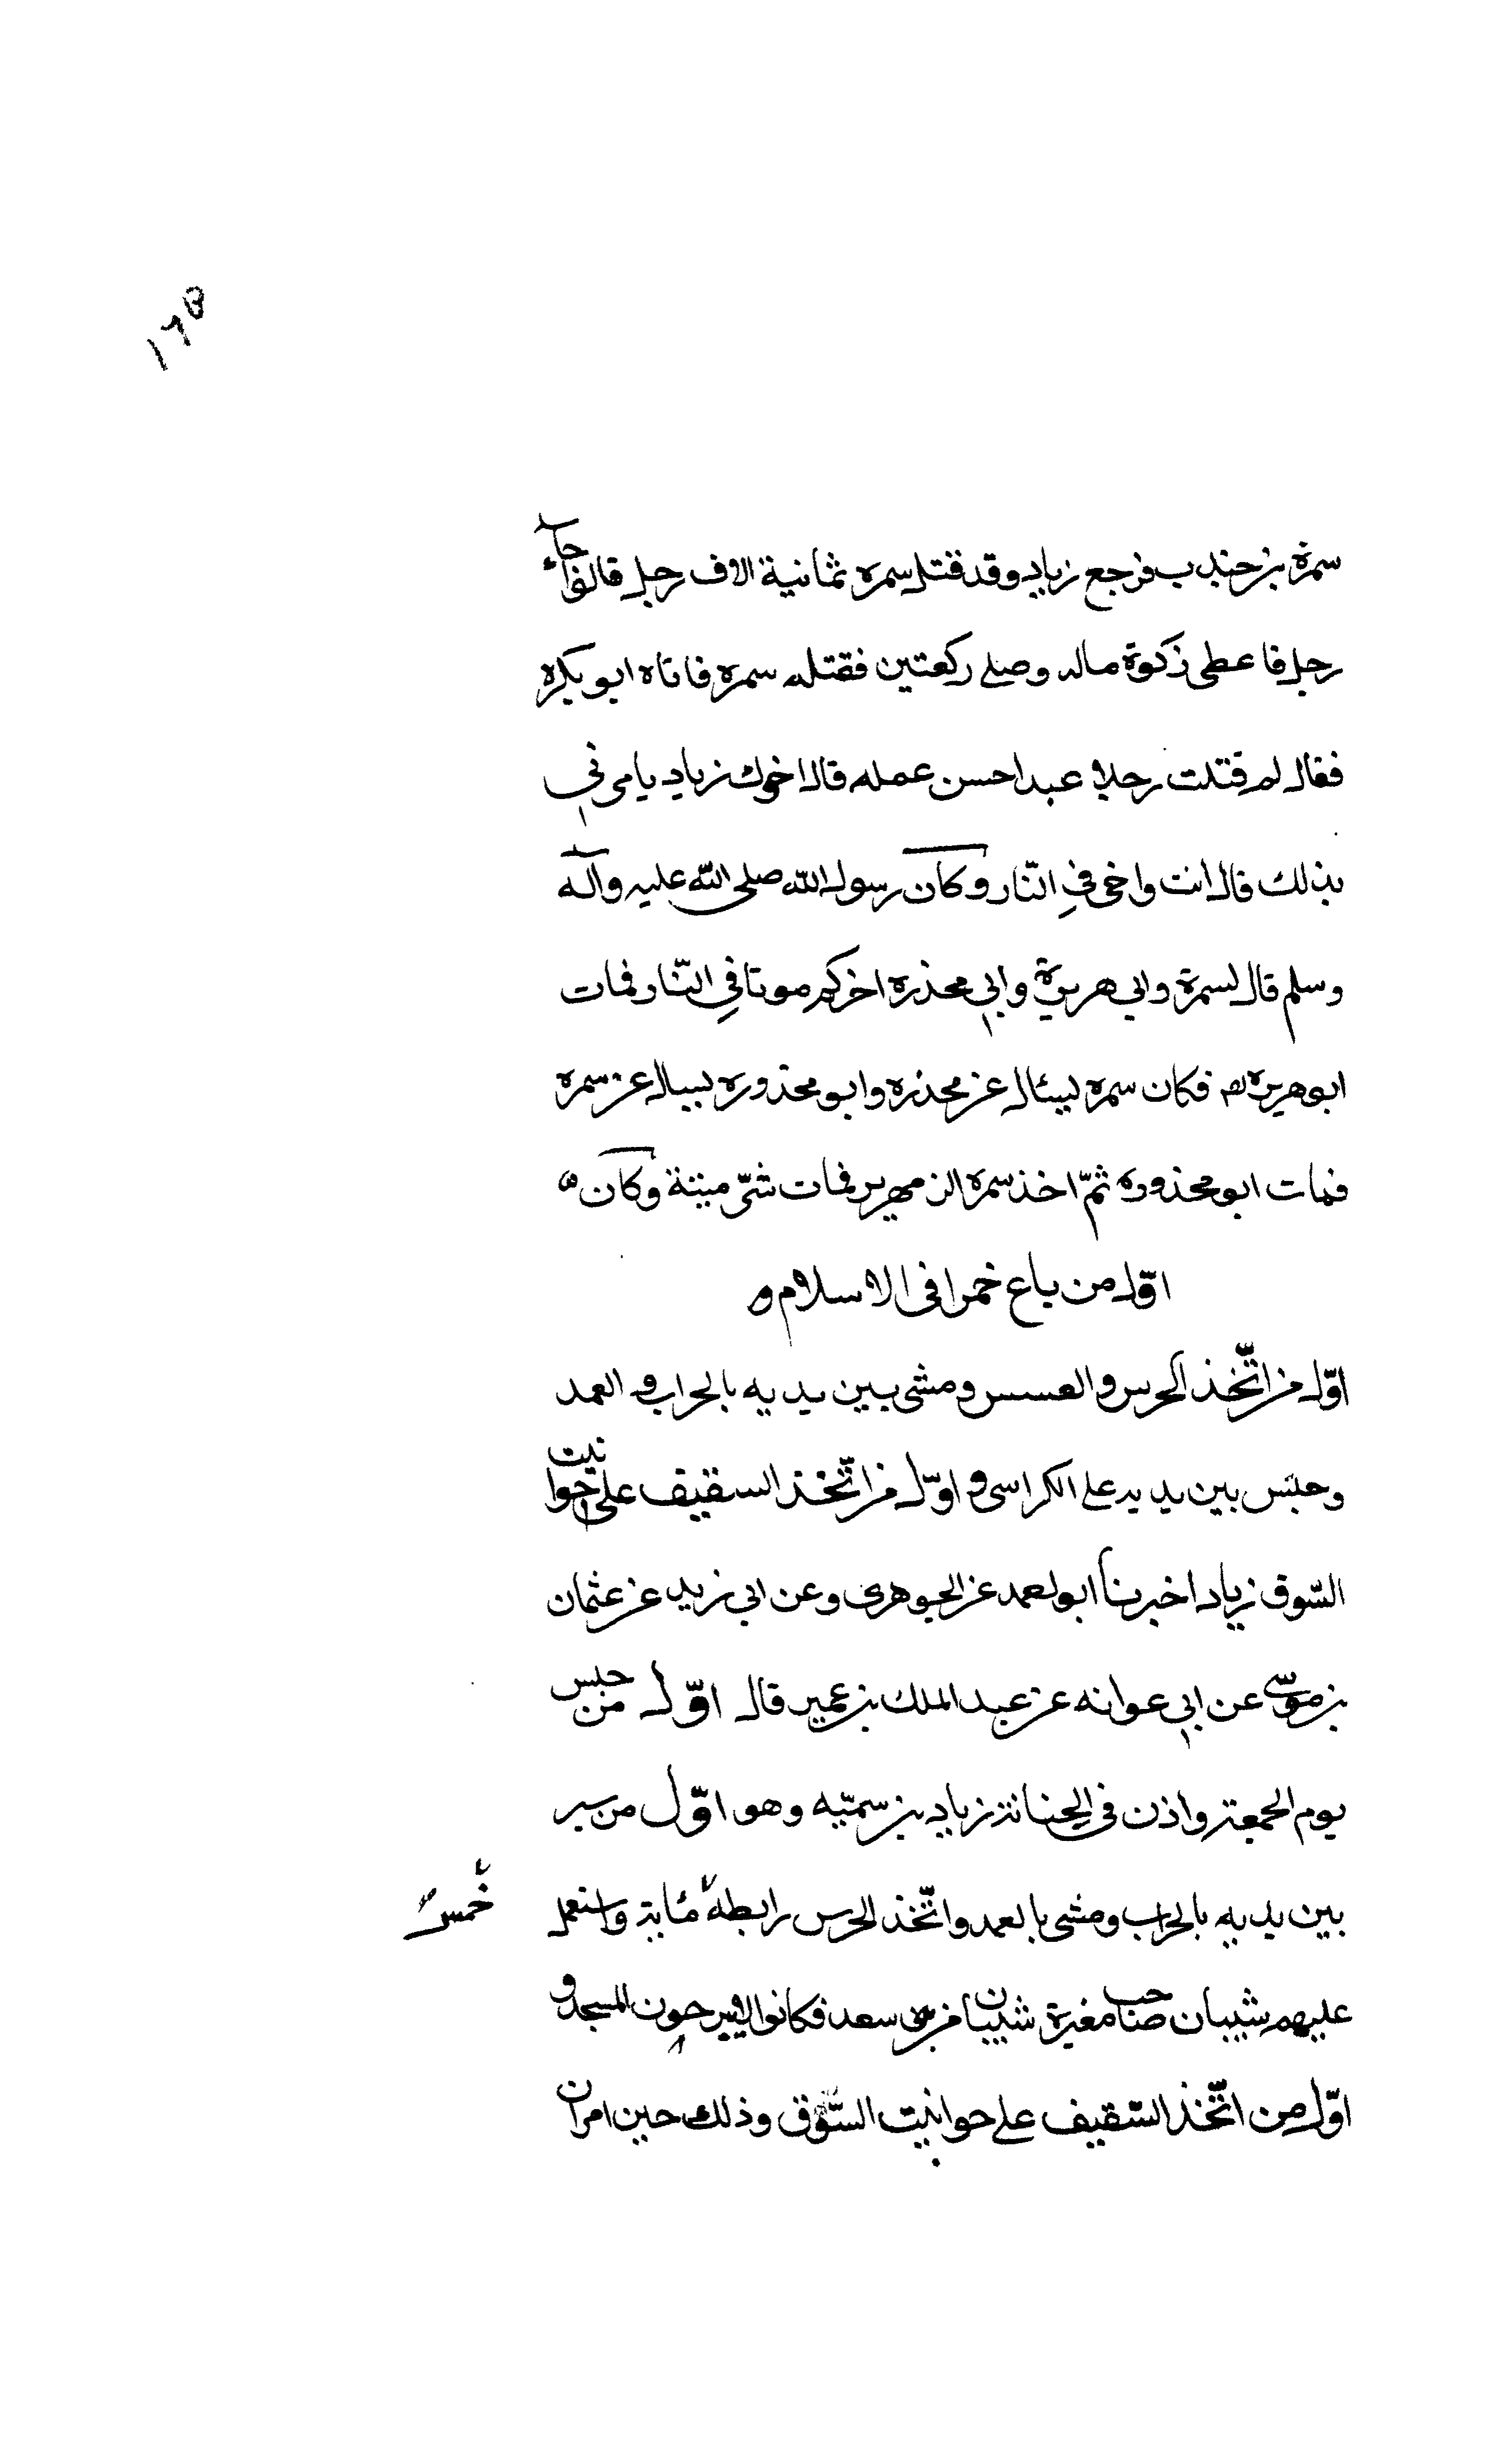 ١٦٥
سمرة بن جندب فرجع زياد وقد قتل سمره ثمانية الاف رجل قال فجاء
رجل فاعطى زكوة ماله وصلى ركعتين فقتله سمره فاتاه ابو بكره
فقال لم قتلت رجلا عبدا حسن عمله قال اخوك زياد يامرني
بذلك قال انت واخي في النّار وكان رسول الله صلى الله عليه وآله
وسلم قال لسمرة وابي هريرة وابي محذره اخركم موتا في النّار فمات
ابو هريره فكان سمره ليسئال عن محذره وابو محذوره ليسال عن سمره
فمات ابو محذوره ثمّ اخذ سمره الزمهرير فمات شرّ ميتة وكان
اوّل من باع خمرا في الاسلام و
اوّل من اتّخذ الحرس والعسس ومشى بين يديه بالحراب والعمد
وجلس بين يديه على الكراسي و اوّل من اتّخذ السقيف على حوانيت
السّوق زياد اخبرنا ابو احمد عن الجوهرى وعن ابي زيد عن عثمان
بن موسى عن ابي عوانه عن عبد الملك بن عمير قال اوّل من جلس
يوم الجمعة واذن في الجنازة زياد بن سميّه وهو اوّل من سير
بين يديه بالحراب ومشى بالعمد واتّخذ الحرس رابطة مائة واستعمل
خمس
عليهم شيبان صاحب مغيرة شيبان من بني سعد فكانوا لا يبرحون المسجد و
اوّل من اتّخذ السّقيف على حوانيت السّوق وذلك حين امر ان